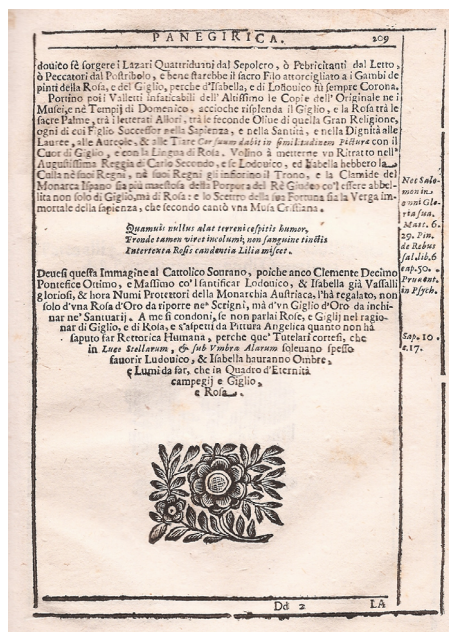 PANEGIRICA. 209
dovico fè sorgere i Lazari Quattriduani dal Sepolcro, ò Febricitanti dal Letto,
ò Peccatori dal Postribolo, e bene starebbe il sacro Filo attorcigliato a i Gambi de
pinti della Rosa, e del Giglio, perche d'Isabella, e di Lodovico fù sempre Corona.
Portino poi i Valletti infaticabili dell'Altissimo le Copie dell'Originale ne i
Musei, e nè Tempij di Domenico, accioche risplenda il Giglio, e la Rosa trà le
sacre Palme, trà i letterati Allori, trà le feconde Olive di quella Gran Religione,
ogni di cui Figlio Successor nella Sapienza, e nella Santità, e nella Dignità alle
Lauree, alle Aureole, & alle Tiare Cor suum dabit in similitudinem Picturæ con il
Cuor di Giglio, e con la Lingua di Rosa. Volino à metterne vn Ritratto nell'
Augustissima Reggia di Carlo Secondo, e se Lodovico, ed Isabella hebbero la
Culla nè suoi Regni, nè suoi Regni gli infiorino il Trono, e la Clamide del
Monarca Ispano sia più maestosa della Porpora del Rè Giudeo co'l essere abbel-
lita non solo di Giglio, mà di Rosa: e lo Scettro della sua Fortuna sia la Verga im-
mortale della sapienza, che secondo cantò vna Musa Cristiana.
Quamvis nullus alat terreni cespitis humor,
Fronde tamen viret incolumi, non sanguine tinctis
Intertexta Rosis candentia Lilia miscet.
Devesi questa Immagine al Cattolico Sovrano, poiche anco Clemente Decimo
Pontefice Ottimo, e Massimo co'l santificar Lodovico, & Isabella già Vassalli
gloriosi, & hora Numi Protettori della Monarchia Austriaca, l'hà regalato, non
solo d'vna Rosa d'Oro da riporre ne' Scrigni, mà d'vn Giglio d'Oro da inchi-
nar ne' Santuarij. A me si condoni, se non parlai Rose, e Giglij nel ragio-
nar di Giglio, e di Rosa, e s'aspetti da Pittura Angelica quanto non hà
saputo far Rettorica Humana, perche que' Tutelari cortesi, che
in Luce Stellarum, & sub Vmbra Alarum solevano spesso
favorir Ludovico, & Isabella hauranno Ombre,
e Lumi da far, che in Quadro d'Eternità
campegij e Giglio,
e Rosa.
Nec Salo-
mon in
omni Glo-
ria sua.
Matt. 6.
29. Pin.
de Rebus
sal. lib. 6
cap. 50.
Prudent.
in Psych.
Sap. 10.
c. 17.
Dd 2 LA